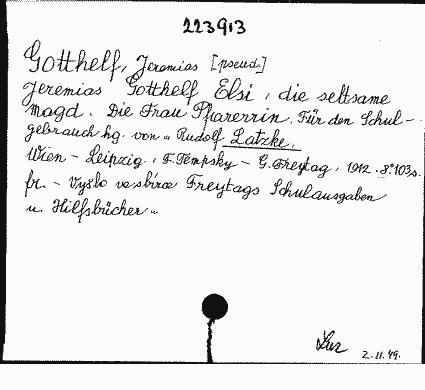 223913
Gotthelf, Jeremias [pseud.]
Jeremias Gotthelf Elsi, die seltsame
Magd. Die Frau Pfarerrin. Für den Schul-
gebrauch hg. von „ Rudolf Latzke.
Wien - Leipzig, F. Tempsky - G. Freytag, 1912. 8°. 103 s.
fr. - Vyšlo ve sbírce Freytags Schulausgaben
u. Hilfsbücher "
2.11.49.